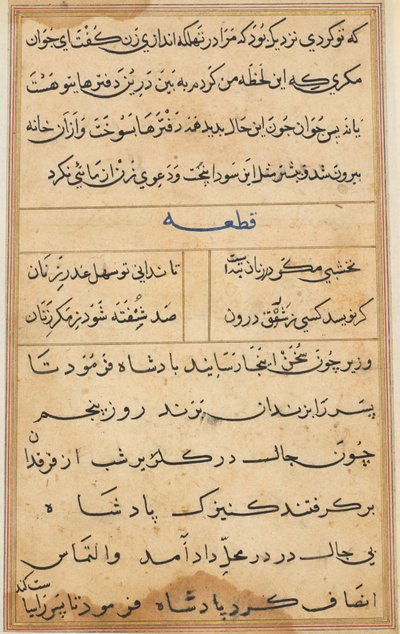 که تو کردی نزدیک بود که مرا در تهلکه اندازی زن گفت ای جوان
مکری که این لحظه من کردم به بین درین دفترها بتو هست
یا نه پس جوان چون این حال بدید همه دفترها بسوخت و ازان خانه
بیرون شد و بیشتر مثل این سودا نپخت و دعوی زن ازمائی نکرد
قطعه
نخشبی مکر در زنان تا ندانی تو سهل غدر زنان
گر نویسد کسی درون صد شود ز مکر زنان
وزیر چون سخن اینجا رسانید بادشاه فرمود تا
پسر را بزندان برند روز پنجم
چون در شب از فرقدان
بر گرفتند کنیزک پادشاه
در در محل داد آمد و التماس
انصاف کرد پادشاه فرمود تا پسر را سیاست کند